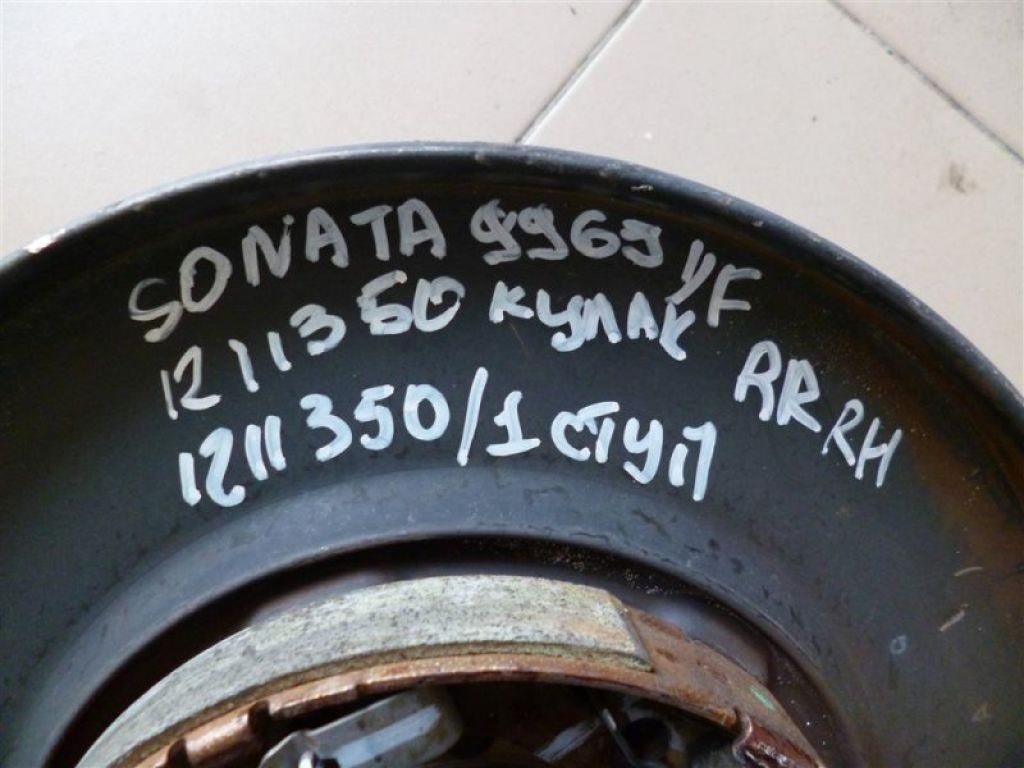 SONATA 9969 YF
1211350 КУЛАК RR RH
1211350/1 СТУП